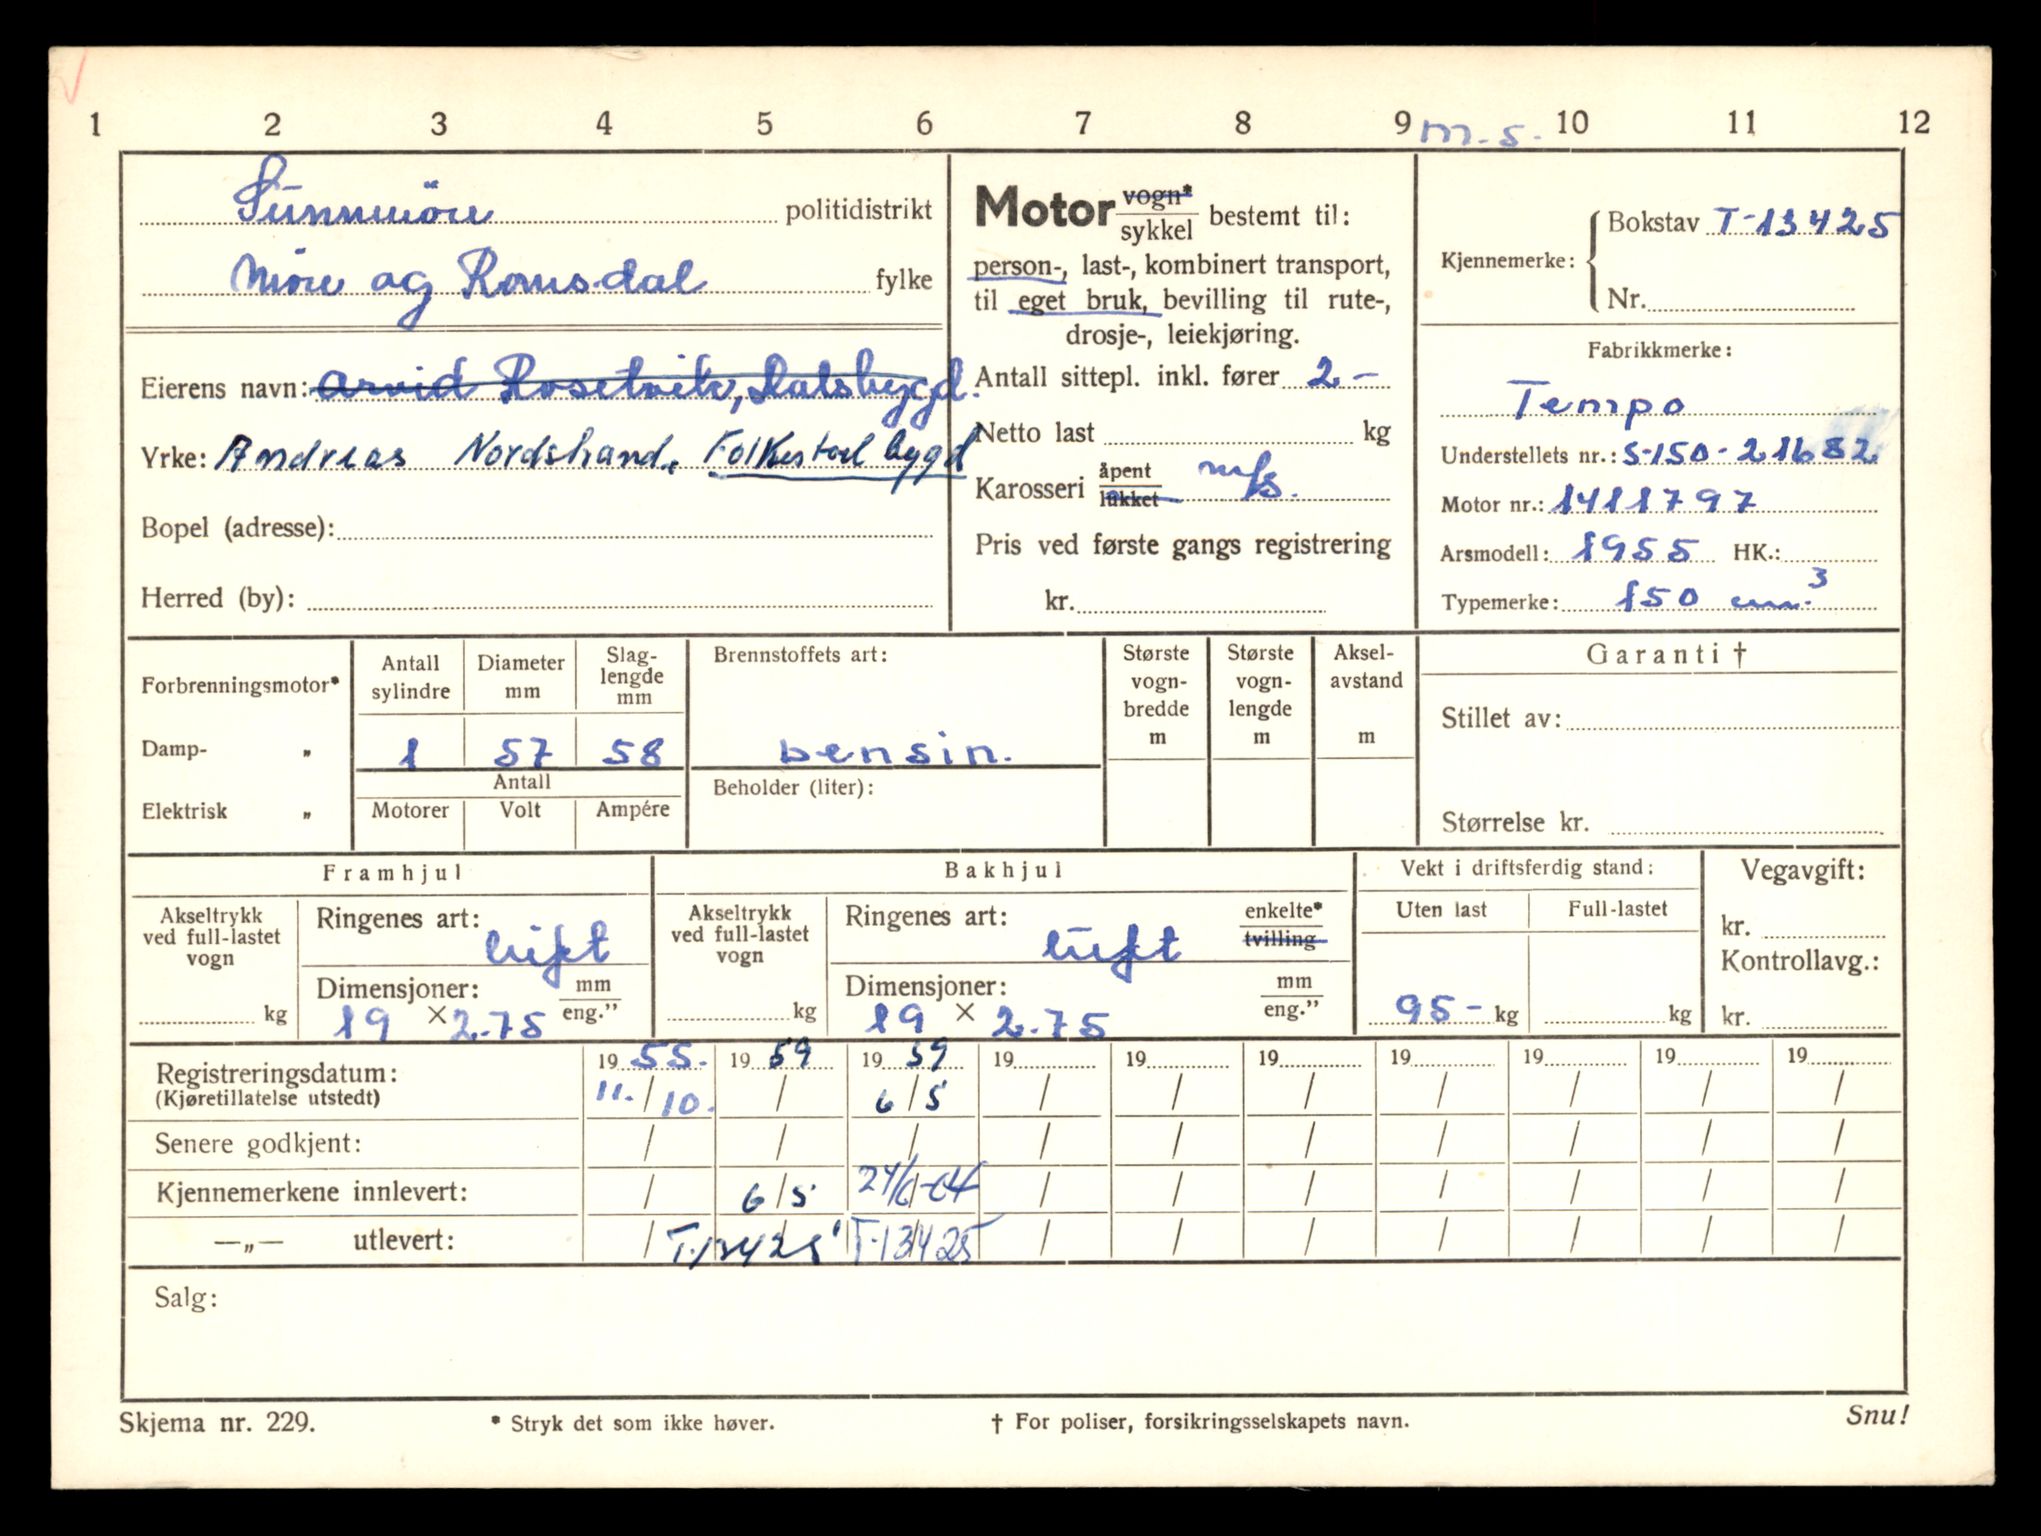 1 2 3 4 5 6 7 8 9 m.s. 10 11 12
Sunnmöre politidistrikt
Möre og Romsdal fylke
Eierens navn: Arvid Rosetvik, Dalsbygd.
Yrke: Andreas Nordstrand, Folkestad bygd
Bopel (adresse):
Herred (by):
Motor vogn*
sykkel bestemt til:
person-, last-, kombinert transport,
til eget bruk, bevilling til rute-,
drosje-, leiekjøring.
Antall sittepl. inkl. fører 2 -
Netto last kg
Karosseri åpent m/s.
lukket
Pris ved første gangs registrering
kr.
Kjennemerke: Bokstav T-13425
Nr.
Fabrikkmerke:
Tempo
Understellets nr.: S-150-21682
Motor nr.: 1411797
Arsmodell: 1955 HK.:
Typemerke: 150 cm.³
Forbrenningsmotor*
Damp- „
Elektrisk „
Antall sylindre Diameter mm Slag-lengde mm
1 57 58
Antall
Motorer Volt Ampére
Brennstoffets art:
bensin.
Beholder (liter):
Største vogn-bredde m
Største vogn-lengde m
Aksel-avstand m
Garanti †
Stillet av:
Størrelse kr.
Framhjul
Akseltrykk ved full-lastet vogn
kg
Ringenes art:
luft
Dimensjoner: mm
19 × 2.75 eng."
Bakhjul
Akseltrykk ved full-lastet vogn
kg
Ringenes art: enkelte*
luft tvilling
Dimensjoner: mm
19 × 2.75 eng."
Vekt i driftsferdig stand:
Uten last Full-lastet
95- kg kg
Vegavgift:
kr.
Kontrollavg.:
kr.
Registreringsdatum: 1955. 1959 1959 19 19 19 19 19 19 19
(Kjøretillatelse utstedt) 11./10. / 6/5 / / / / / / /
Senere godkjent: / / / / / / / / / /
Kjennemerkene innlevert: / 6/5 24/6-64 / / / / / / /
—„— utlevert: / T-13425 T-13425 / / / / / / /
Salg:
Skjema nr. 229. * Stryk det som ikke høver. † For poliser, forsikringsselskapets navn. Snu!